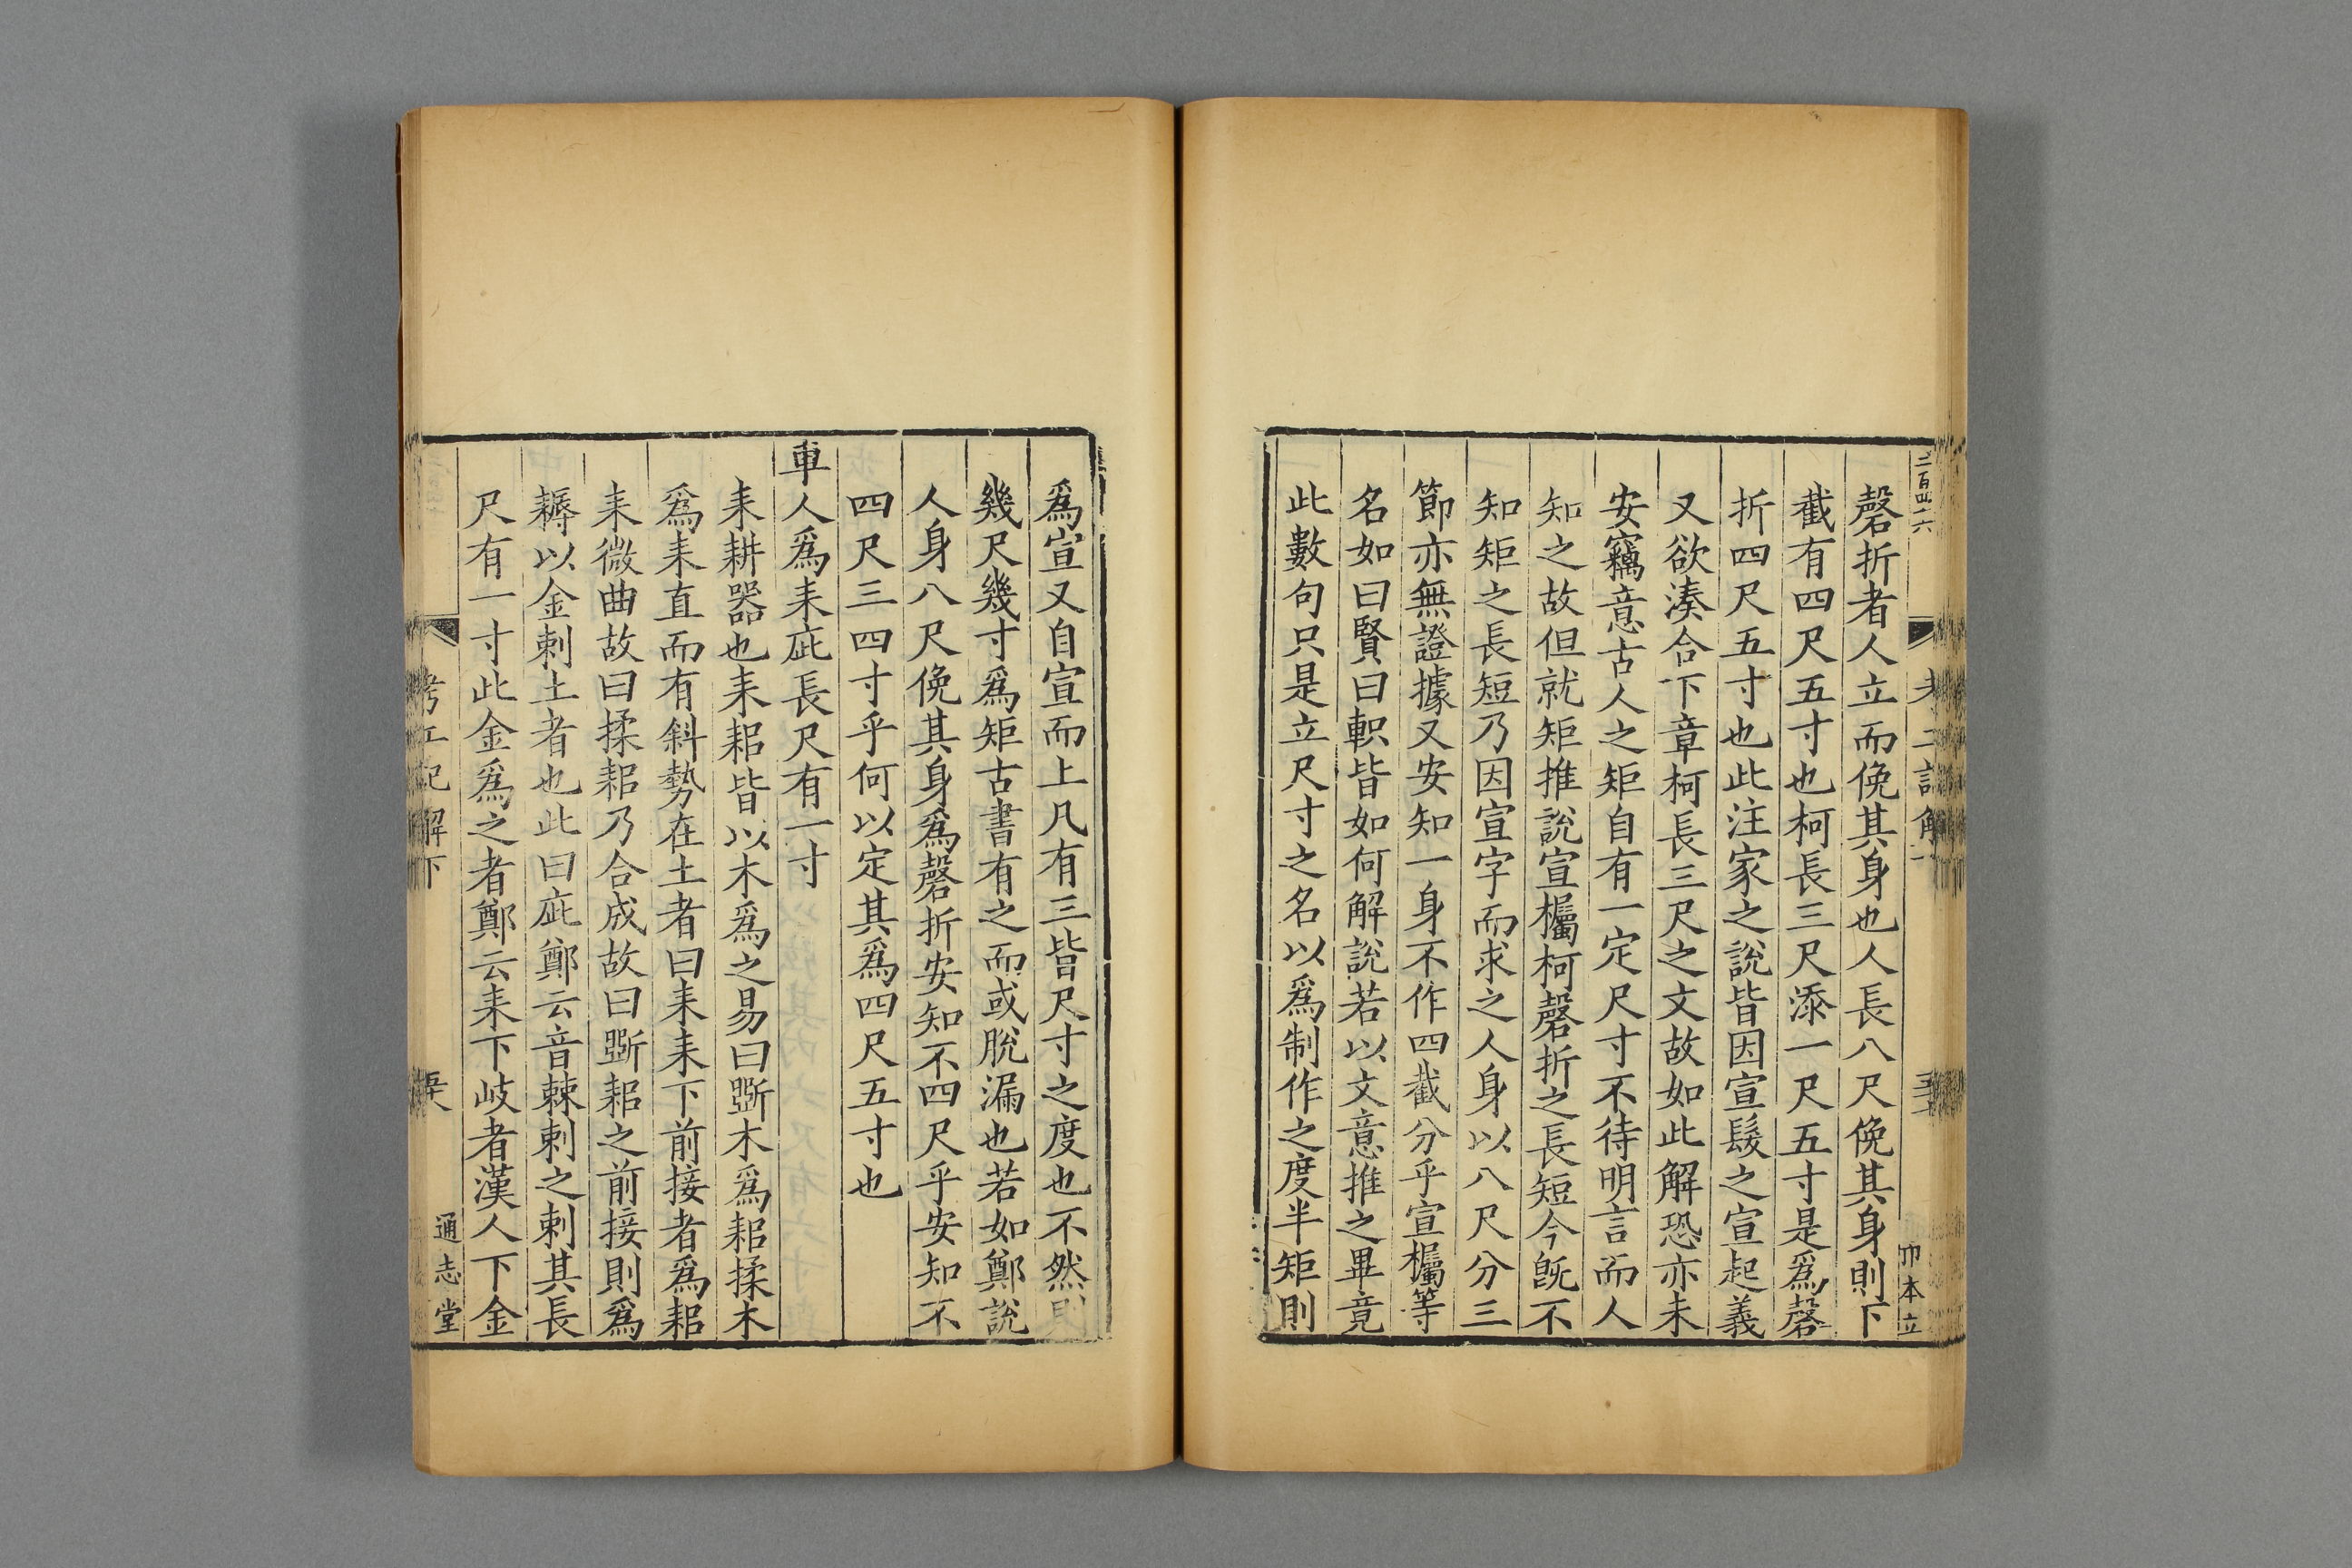 二百四十六
磬折者人立而俛其身也人長八尺俛其身則下
截有四尺五寸也柯長三尺添一尺五寸是爲磬
折四尺五寸也此注家之說皆因宣髮之宣起義
又欲湊合下章柯長三尺之文故如此解恐亦未
安竊意古人之矩自有一定尺寸不待明言而人
知之故但就矩推說宣欘柯磬折之長短今旣不
知矩之長短乃因宣字而求之人身以八尺分三
節亦無證據又安知一身不作四截分乎宣欘等
名如曰賢曰軹皆如何解說若以文意推之畢竟
此數句只是立尺寸之名以爲制作之度半矩則
爲宣又自宣而上凡有三皆尺寸之度也不然則
幾尺幾寸爲矩古書有之而或脫漏也若如鄭說
人身八尺俛其身爲磬折安知不四尺乎安知不
四尺三四寸乎何以定其爲四尺五寸也
車人爲耒庛長尺有一寸
耒耕器也耒耜皆以木爲之易曰斲木爲耜揉木
爲耒直而有斜勢在土者曰耒耒下前接者爲耜
耒微曲故曰揉耜乃合成故曰斲耜之前接則爲
耨以金刺土者也此曰庛鄭云音棘刺之刺其長
尺有一寸此金爲之者鄭云耒下岐者漢人下金
考工記解下
通志堂